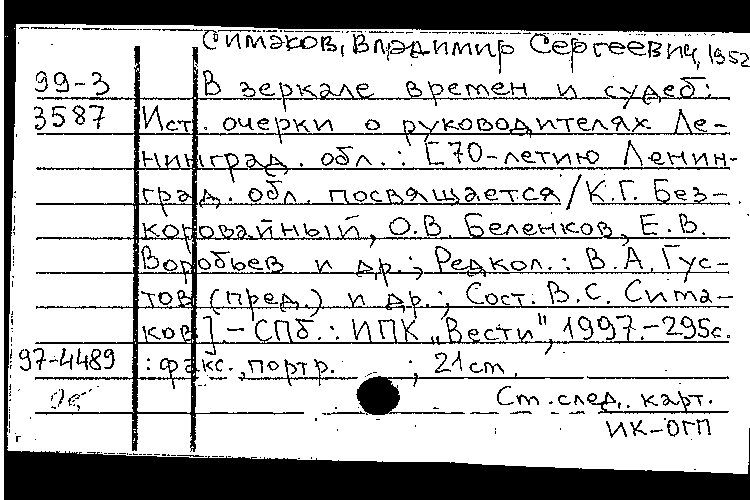 Симаков, Владимир Сергеевич, 1952
99-3 В зеркале времен и судеб:
3587 Ист. очерки о руководителях Ле-
нинград. обл. : [70-летию Ленин-
град. обл. посвящается / К.Г. Без-
коровайный, О.В. Беленков, Е.В.
Воробьев и др.; Редкол.: В.А. Гус-
тов (пред.) и др.; Сост. В.С. Сима-
ков]. - СПб.: ИПК „Вести", 1997.-295с.
97-4489 : факс., портр. ; 21 см.
Ст. след. карт.
ИК-ОГП